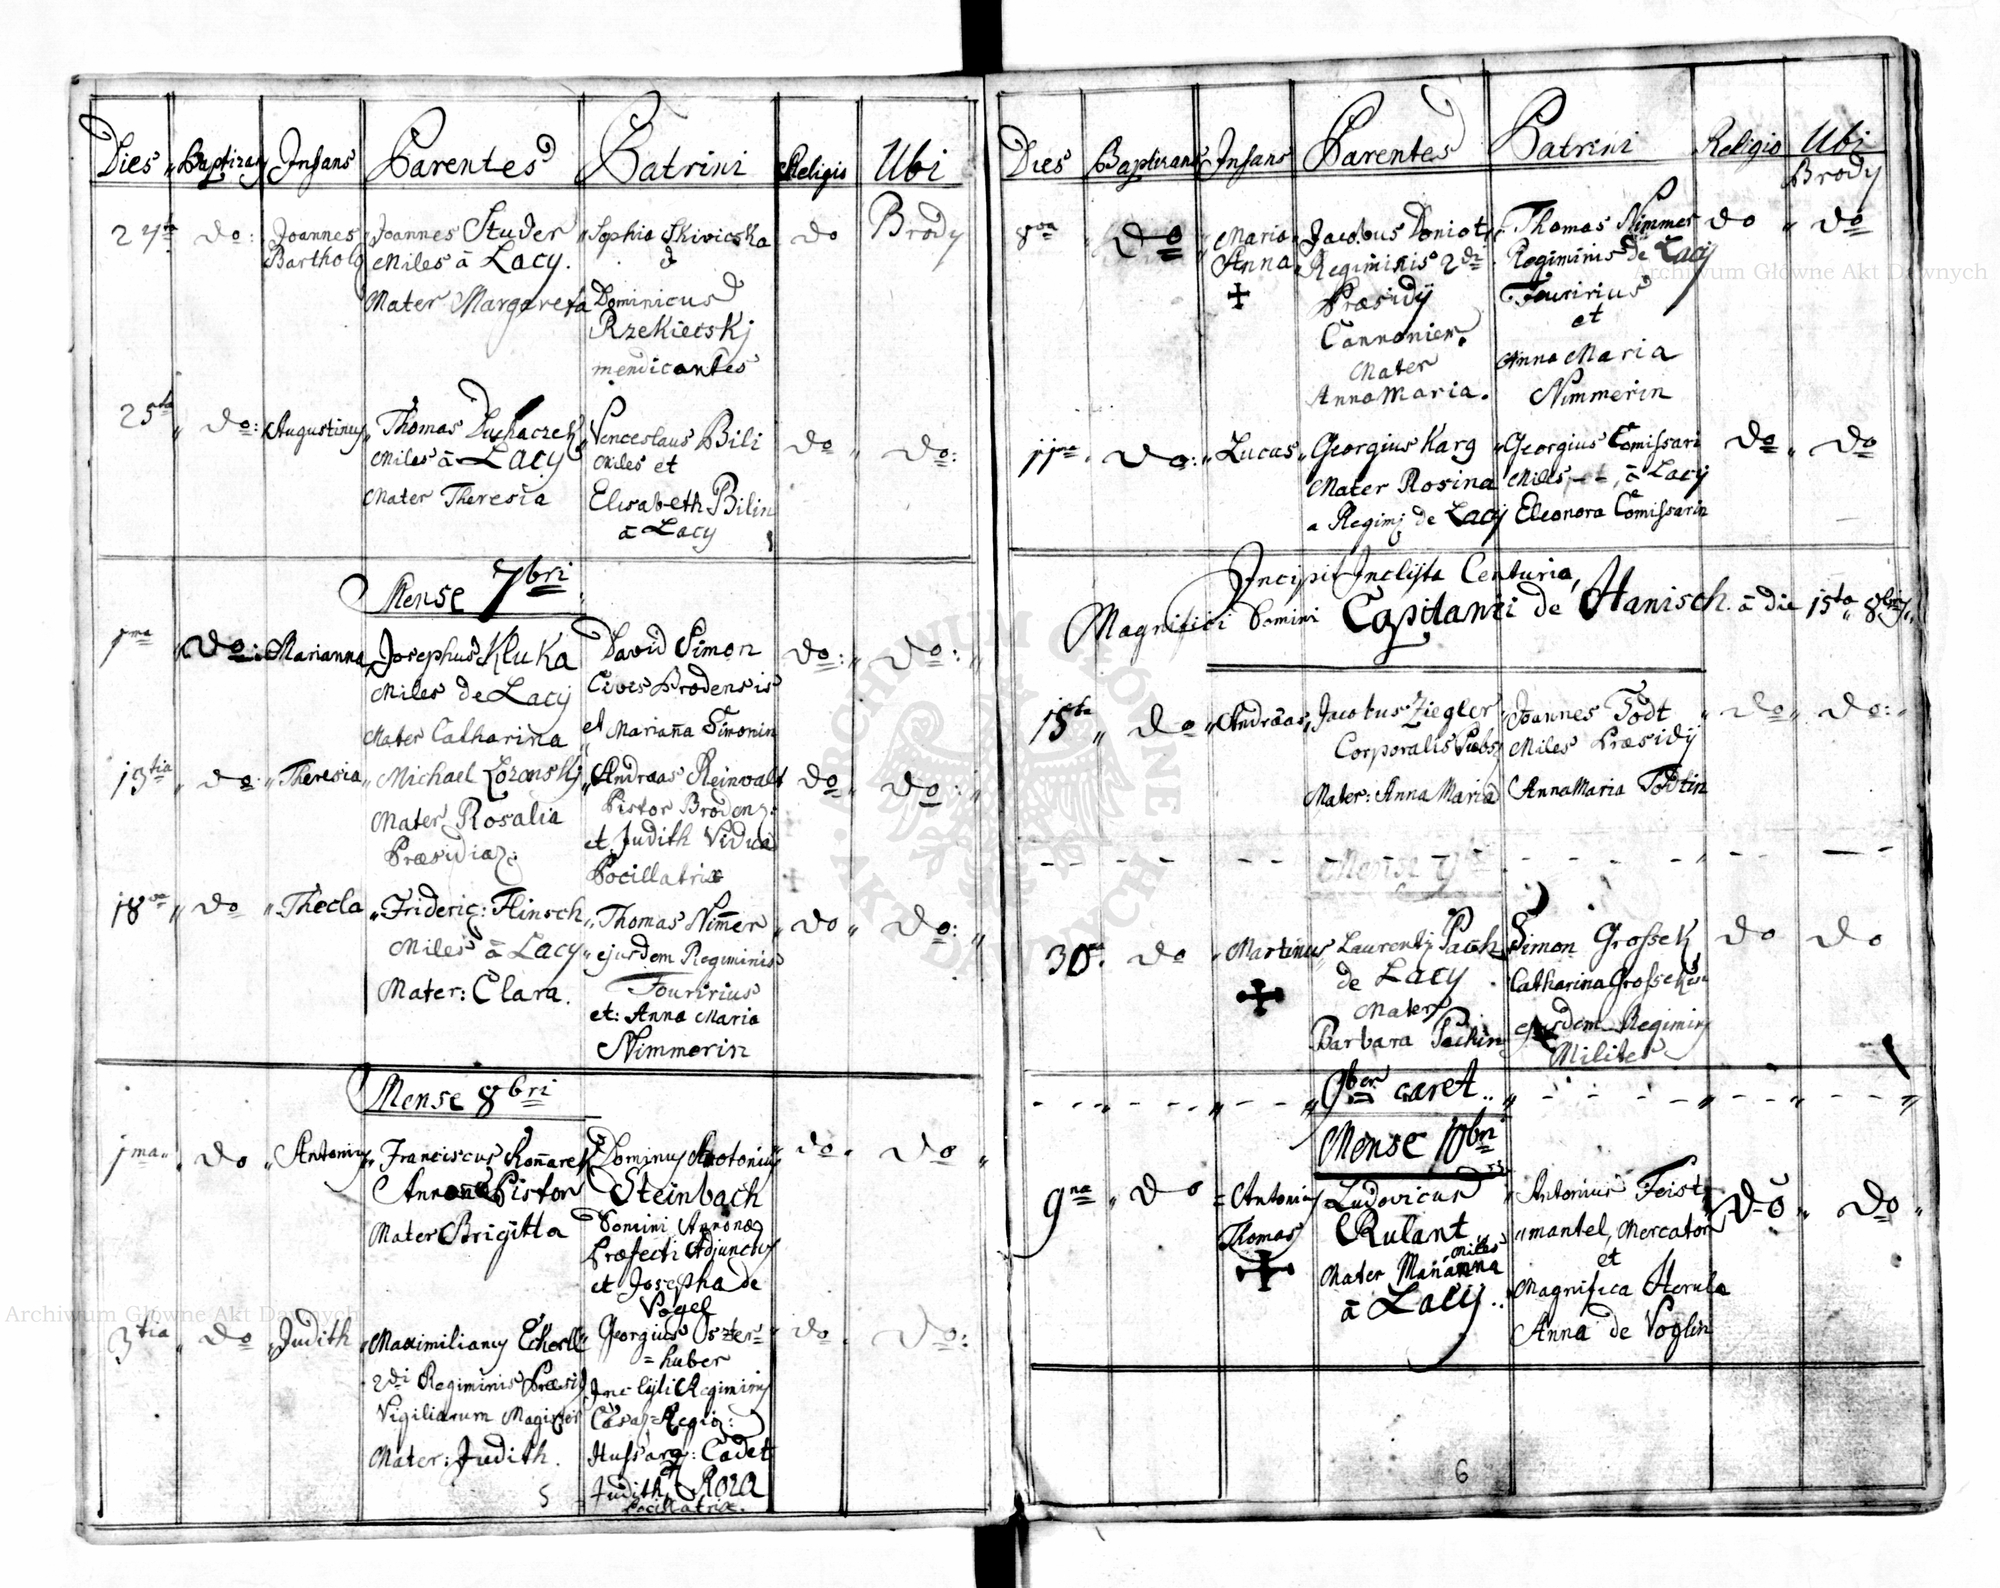 Dies Baptizans Infans Parentes Patrini Religio Ubi
24ta do: Joannes Joannes Studer Sophia Skivicska do Brody
Barthol Miles â Lacy. &
Mater Margareta Dominicus
Rzekietskj
mendicantes
25ta do: Augustinus Thomas Duchaczek Venceslaus Bili do do:
Miles â Lacy Miles et
Mater Theresia Elisabeth Bilin
â Lacy
Mense 7bri
1ma do: Marianna Josephus Kluka David Simon do: do:
Miles de Lacy Cives Brodensis
Mater Catharina et Mariana Simonin
13tia do: Theresia Michael Lozanskj Andreas Reinwalt do do:
Mater Rosalia Pistor Broden:
Præsidia: et Judith Vidua
Pocillatrix
18va do Thecla Frideric: Flinsch Thomas Nimer do do:
Miles â Lacy ejusdem Regiminis
Mater: Clara. Fouririus
et: Anna Maria
Nimmerin
Mense 8bri
1ma do Antonius Franciscus Konarek Dominus Antonius do do
Annonæ Pistor Steinbach
Mater Brigitta Domini Annonæ
Præfecti Adjunctus
et Josepha de
Vogel
3tia do Judith Maximilianus Georgius Oszter= do do:
=huber
2di Regiminis Præsid Inclyti Regiminis
Vigiliarum Magister Cæsar=Regio:
Mater: Judith. Hussarg: Cadet
Judith Roza
Pocillatrix.
5
Dies Baptizans Infans Parentes Patrini Religio Ubi
Brody
8va do Maria Jacobus Doniot Thomas Nimmer do do
Anna Regiminis 2di Regiminis de Lacy
Præsidij Fouririus
Cannonier. et
Mater Anna Maria
Anna Maria. Nimmerin
11ma do: Lucas Georgius Karg Georgius Comissari do do
Mater Rosina Miles et â Lacy
a Regimj de Lacy Eleonora Comissarin
Incipit Inclyta Centuria
Magnifici Domini Capitanei de Hanisch. â die 15ta 8bris
15ta do Andræas Jacobus Ziegler Joannes Todt do do:
Corporalis Miles Præsidij
Mater: Anna Maria Anna Maria Todtin
30ma do Martinus Laurentij Pach Simon Grossek do do
de Lacy Catharina
Mater ejusdem Regimin
Barbara Pachin Milites
9ber caret
Mense 10bri
9na do Antonius Ludovicus Antonius Feist do do
Thomas Rulant mantel, Mercator
Miles et
Mater Marianna Magnifica Herula
â Lacy Anna de Voglin
6
Archiwum Główne Akt Dawnych
Archiwum Główne Akt Dawnych
ARCHIWUM GŁÓWNE AKT DAWNYCH